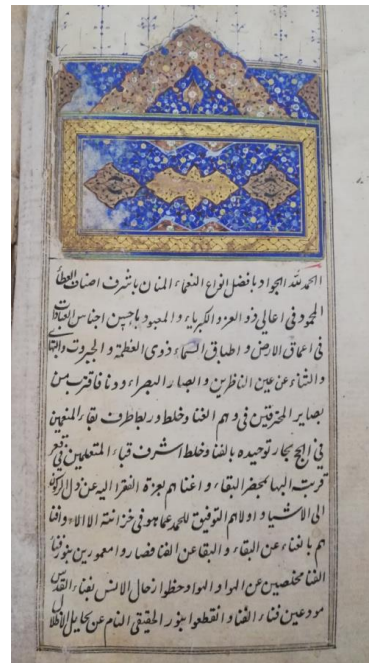 الحمد لله الجواد بافضل انواع النعماء المنان باشرف اصناف العطاء
المحمود فى اعالى ذو العز و الكبرياء و المعبود باحسن اجناس العبادات
فى اعماق الارض و اطباق السماء ذوى العظمة و الجبروت و البهاء
و الثناء عن عين الناظرين و ابصار البصراء دونا فاقترب من
بصاير المحترقين فى وهم الغنا و خلط در بعا طرف بقاء المنعمين
فى لجج بحار توحيده بالفنا و خلط اشرف قباء المتعلمين فى قعر
قربت البها بحضر البقاء و اغناهم بعزة الفقر اليه عن ذل الركون
الى الاشياء و اولاهم التوفيق للحمد عما هو فى خزانة الالاء و افنا
هم بالغناء عن البقاء و البقا عن الفنا فصاروا معمورين بنور فناء
الفنا مخلصين عن الهوا و الهواد حظوا رحال الانس بفناء القدس
مودعين فناء الفنا و انقطعوا بنور الحقيقى التام عن تحايل الاظلال